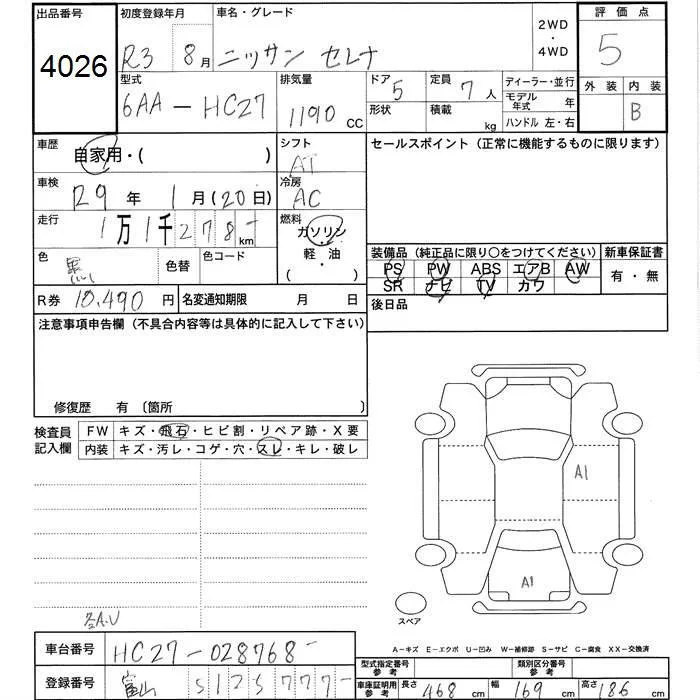 出品番号 初度登録年月 車名・グレード 2WD ・ 4WD 評価点
4026 R3 8月 ニッサン セレナ 5
型式 排気量 ドア 定員 ディーラー・並行 外装 内装
6AA-HC27 1190 CC 5 7人 モデル年式 年 B
形状 積載 kg ハンドル 左・右
車歴 自家用・( ) シフト AT セールスポイント(正常に機能するものに限ります)
車検 29年 1月(20日) 冷房 AC
走行 1万1千278- km 燃料 ガソリン・軽・油 ( )
色 黒 色替 色コード
装備品(純正品に限り〇をつけてください) 新車保証書
PS PW ABS エアB AW 有・無
SR ナビ TV カワ
R券 10,490円 名変通知期限 月 日 後日品
注意事項申告欄(不具合内容等は具体的に記入して下さい)
修復歴 有 〔箇所 〕
検査員記入欄 FW キズ・飛石・ヒビ割・リペア跡・X要
内装 キズ・汚レ・コゲ・穴・スレ・キレ・破レ
A1
A1
スペア
A-キズ E-エクボ U-凹み W-補修跡 S-サビ C-腐食 XX-交換済
車台番号 HC27-028768-
登録番号 富山 S125777-
型式指定番号 参考 類別区分番号 参考
車庫証明用 参考 長さ 468cm 幅 169cm 高さ 186cm